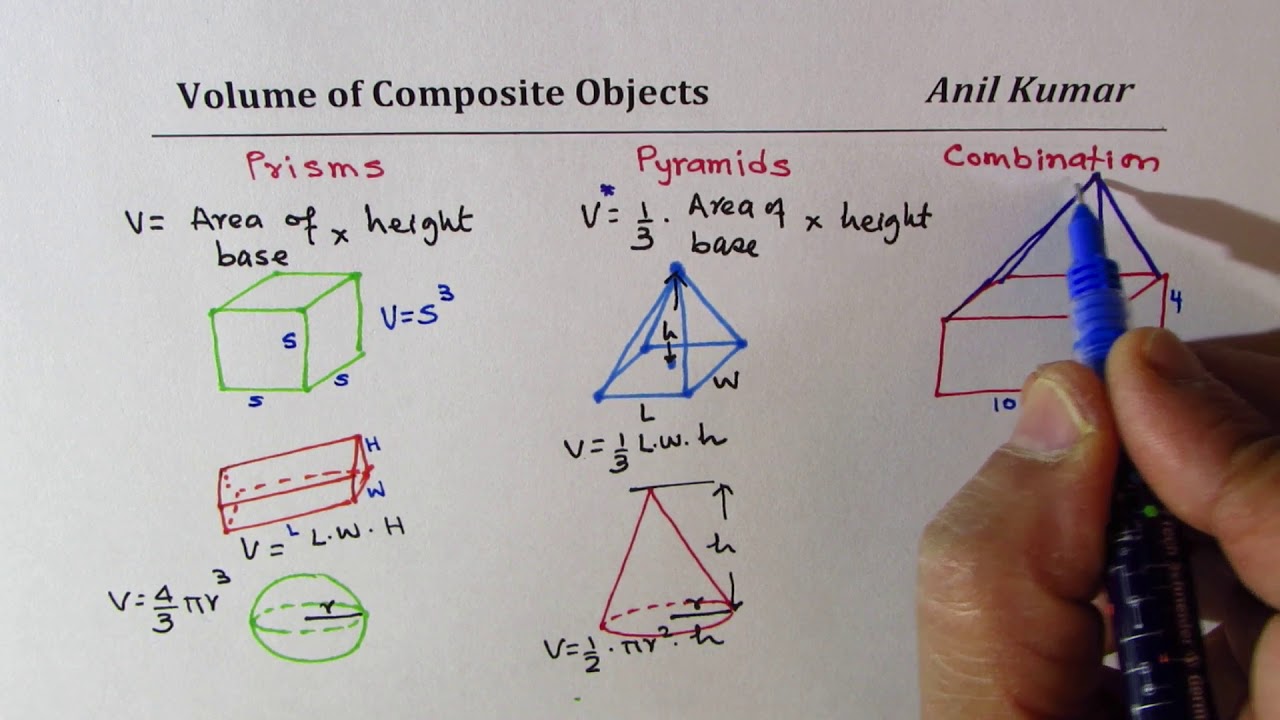 Volume of Composite Objects
Anil Kumar
Prisms
V= Area of base x height
S
S
S
V=S³
H
W
L
V= L.W.H
V=4/3 πr³
r
Pyramids
V*= 1/3 . Area of base x height
h
W
L
V=1/3 L.W.h
h
r
V=1/2 . πr² . h
Combination
4
10